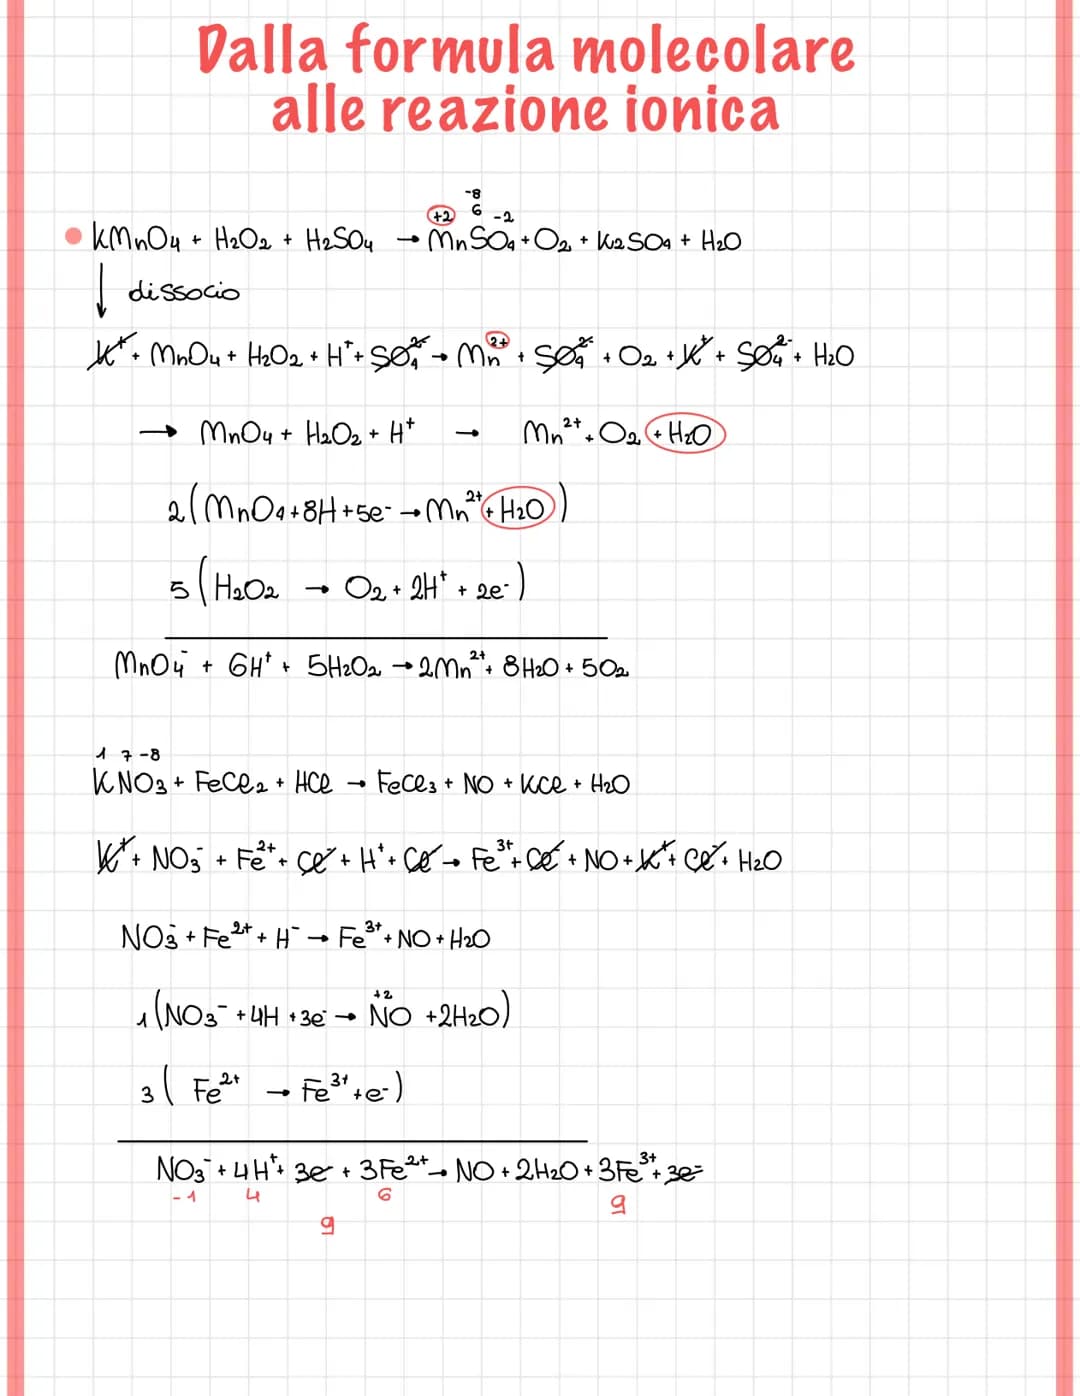 Dalla formula molecolare
alle reazione ionica
-8
+2 6 -2
KMnO4 + H2O2 + H2SO4 → MnSO4 + O2 + K2SO4 + H2O
↓ dissocio
K⁺ + MnO4 + H2O2 + H⁺ + SO4²⁻ → Mn²⁺ + SO4²⁻ + O2 + K⁺ + SO4²⁻ + H2O
→ MnO4 + H2O2 + H⁺ → Mn²⁺ + O2 + H2O
2(MnO4 + 8H + 5e⁻ → Mn²⁺ + H2O)
5(H2O2 → O2 + 2H⁺ + 2e⁻)
MnO4⁻ + 6H⁺ + 5H2O2 → 2Mn²⁺ + 8H2O + 5O2
1 7 -8
KNO3 + FeCl2 + HCl → FeCl3 + NO + KCl + H2O
K⁺ + NO3⁻ + Fe²⁺ + Cl⁻ + H⁺ + Cl⁻ → Fe³⁺ + Cl⁻ + NO + K⁺ + Cl⁻ + H2O
NO3⁻ + Fe²⁺ + H⁻ → Fe³⁺ + NO + H2O
+2
1(NO3⁻ + 4H + 3e⁻ → NO + 2H2O)
3( Fe²⁺ → Fe³⁺ + e⁻)
NO3⁻ + 4H⁺ + 3e⁻ + 3Fe²⁺ → NO + 2H2O + 3Fe³⁺ + 3e⁻
-1 4 6 9
9